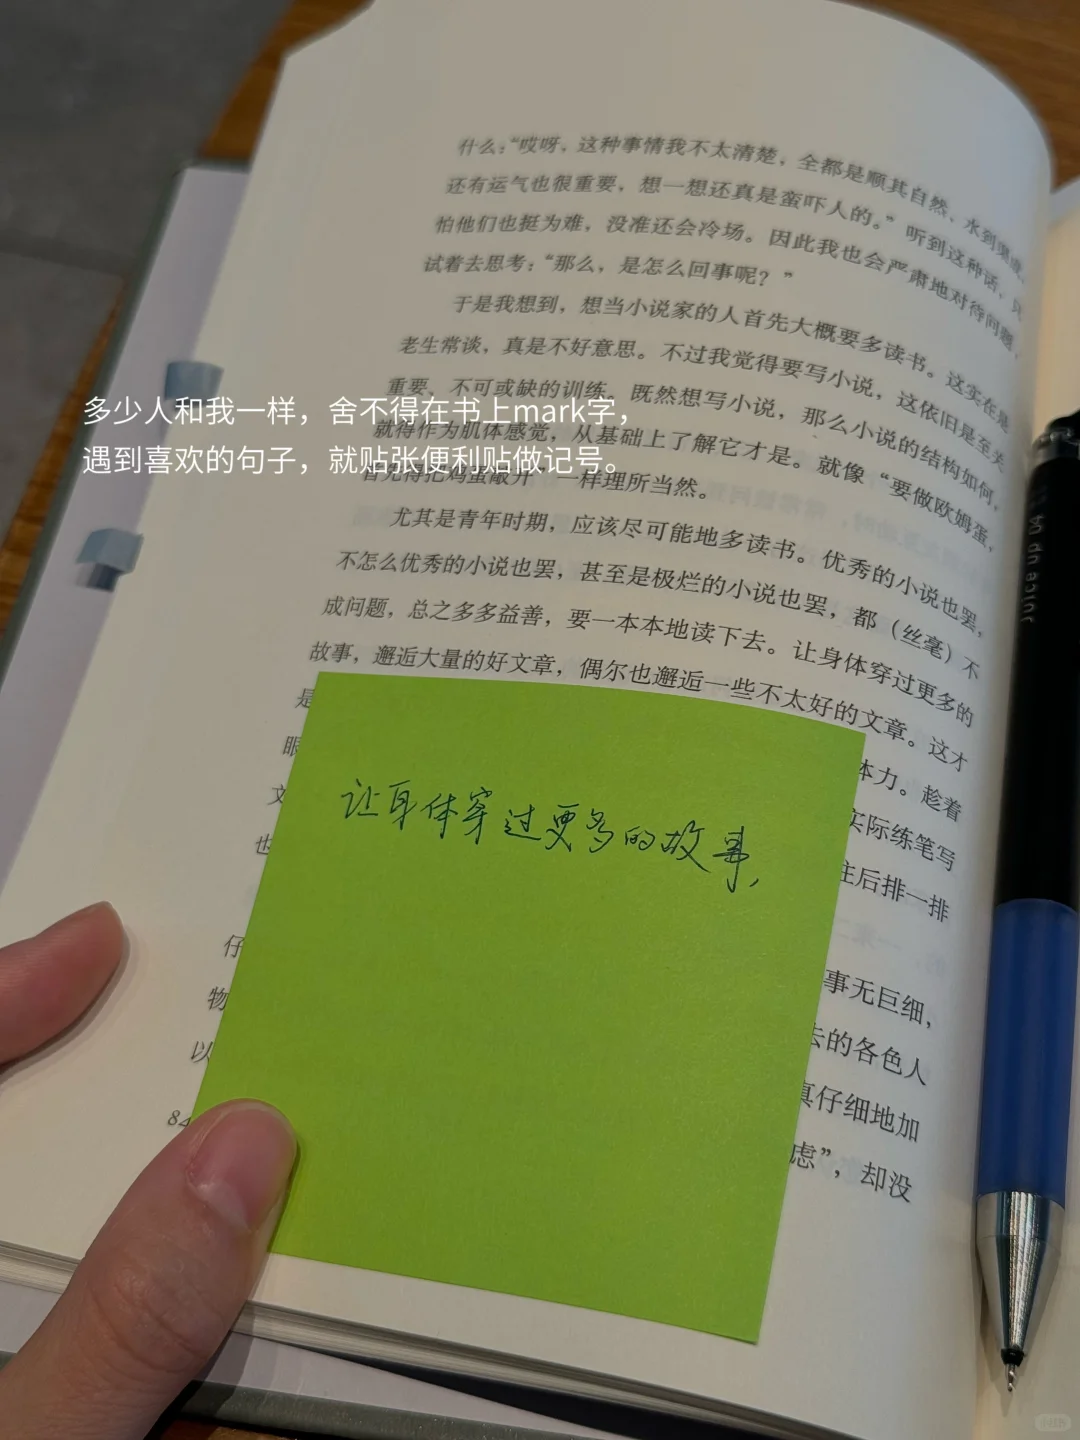 什么："哎呀，这种事情我不太清楚，全都是顺其自然、水到渠成，
还有运气也很重要，想一想还真是蛮吓人的。"听到这种话，只
怕他们也挺为难，没准还会冷场。因此我也会严肃地对待问题，
试着去思考："那么，是怎么回事呢？"
于是我想到，想当小说家的人首先大概要多读书。这实在是
老生常谈，真是不好意思。不过我觉得要写小说，这依旧是至关
重要、不可或缺的训练。既然想写小说，那么小说的结构如何，
多少人和我一样，舍不得在书上mark字，
就得作为肌体感觉，从基础上了解它才是。就像"要做欧姆蛋，
遇到喜欢的句子，就贴张便利贴做记号。
首先得把鸡蛋敲开"一样理所当然。
尤其是青年时期，应该尽可能地多读书。优秀的小说也罢，
不怎么优秀的小说也罢，甚至是极烂的小说也罢，都（丝毫）不
成问题，总之多多益善，要一本本地读下去。让身体穿过更多的
故事，邂逅大量的好文章，偶尔也邂逅一些不太好的文章。这才
是
眼 体力。趁着
文 实际练笔写
也 往后排一排
让身体穿过更多的故事，
仔 事无巨细，
物 去的各色人
以 真仔细地加
84 虑"，却没
juice up 04